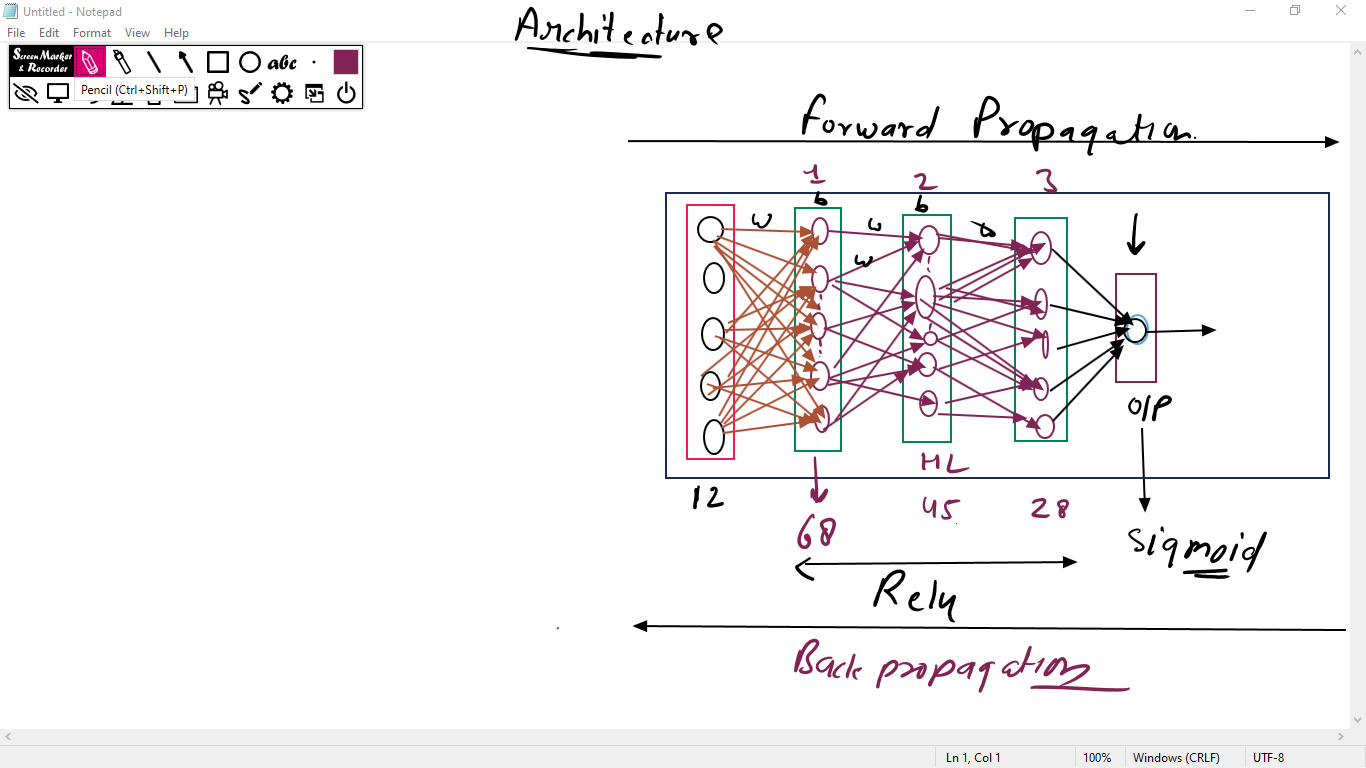 Untitled - Notepad
File Edit Format View Help
Screen Marker & Recorder
abc
Pencil (Ctrl+Shift+P)
Architecture
Forward Propagation
1 2 3
b b
w w w
O/P
HL
12 68 45 28
Sigmoid
Relu
Back propagation
Ln 1, Col 1 100% Windows (CRLF) UTF-8